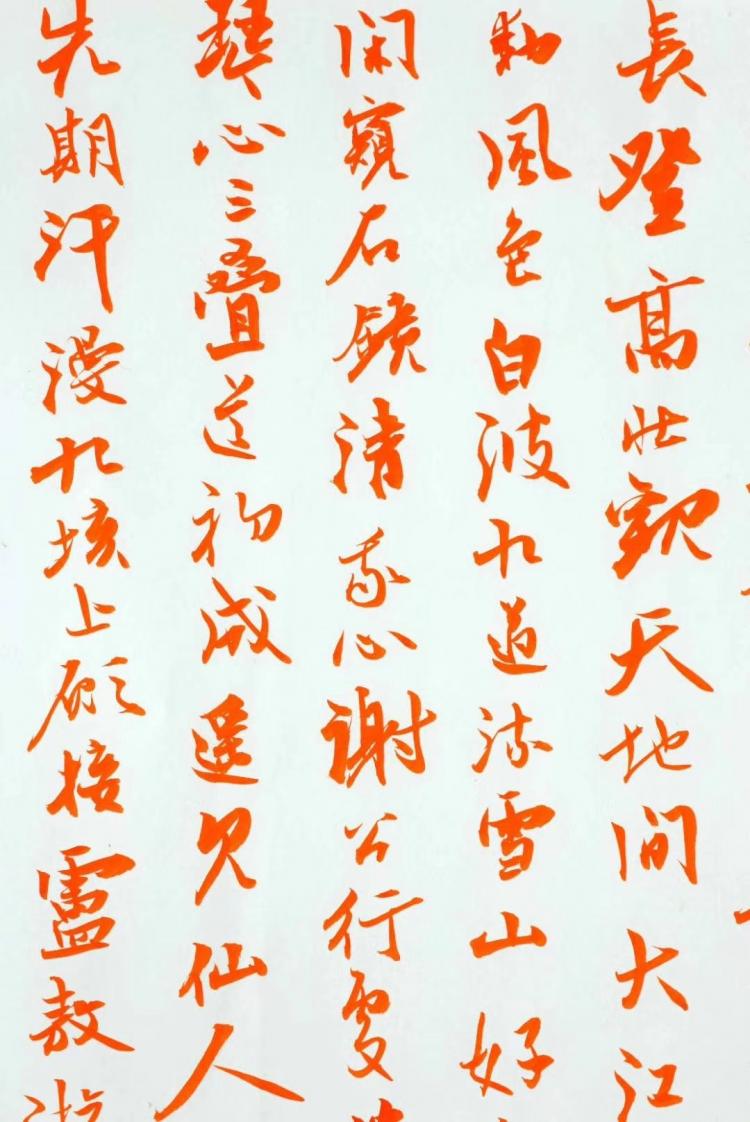 長登高壯觀天地間大江
動風色白波九道流雪山好
閑窺石鏡清我心謝公行處
琴心三疊道初成遥見仙人
先期汗漫九垓上願接盧敖游